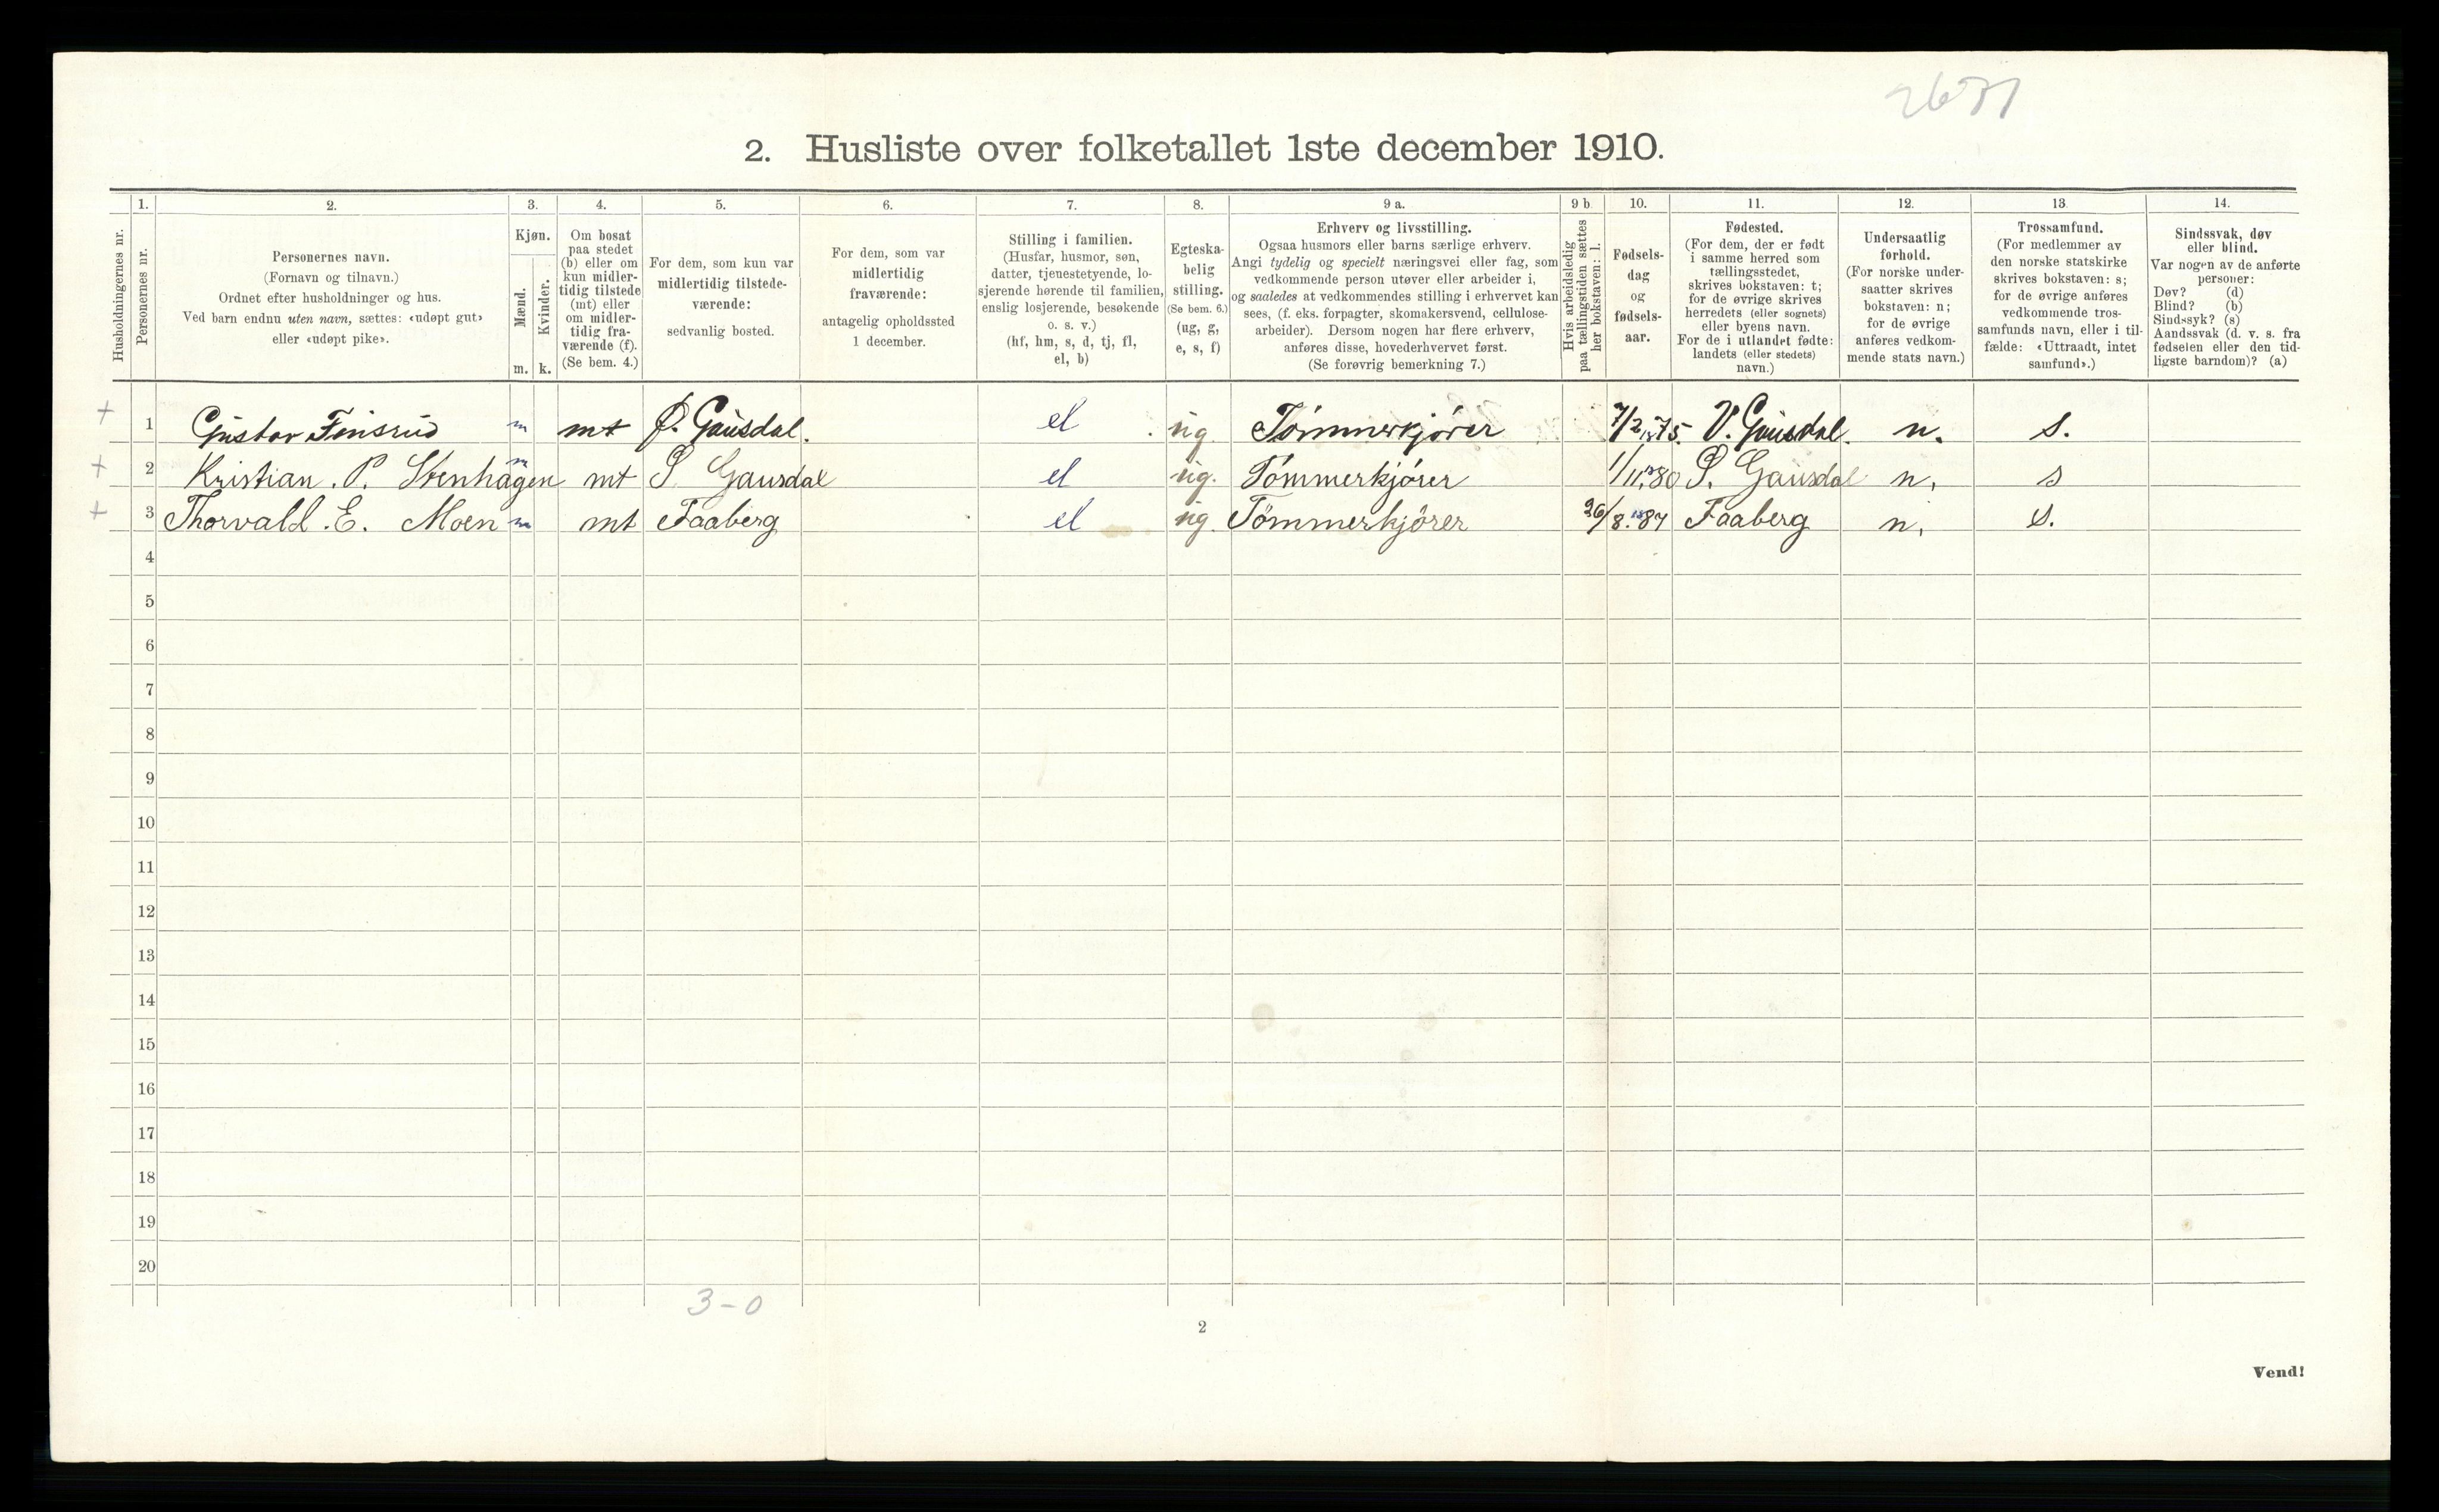 2671
2. Husliste over folketallet 1ste december 1910.
1. 2. 3. 4. 5. 6. 7. 8. 9 a. 9 b 10. 11. 12. 13. 14.
Husholdningernes nr.
Personernes nr.
Personernes navn.
(Fornavn og tilnavn.)
Ordnet efter husholdninger og hus.
Ved barn endnu uten navn, sættes: «udøpt gut»
eller «udøpt pike».
Kjøn.
Mænd.
Kvinder.
m. k.
Om bosat
paa stedet
(b) eller om
kun midler-
tidig tilstede
(mt) eller
om midler-
tidig fra-
værende (f).
(Se bem. 4.)
For dem, som kun var
midlertidig tilstede-
værende:
sedvanlig bosted.
For dem, som var
midlertidig
fraværende:
antagelig opholdssted
1 december.
Stilling i familien.
(Husfar, husmor, søn,
datter, tjenestetyende, lo-
sjerende hørende til familien,
enslig losjerende, besøkende
o. s. v.)
(hf, hm, s, d, tj, fl,
el, b)
Egteska-
belig
stilling.
(Se bem. 6.)
(ug, g,
e, s, f)
Erhverv og livsstilling.
Ogsaa husmors eller barns særlige erhverv.
Angi tydelig og specielt næringsvei eller fag, som
vedkommende person utøver eller arbeider i,
og saaledes at vedkommendes stilling i erhvervet kan
sees, (f. eks. forpagter, skomakersvend, cellulose-
arbeider). Dersom nogen har flere erhverv,
anføres disse, hovederhvervet først.
(Se forøvrig bemerkning 7.)
Hvis arbeidsledig
paa tællingstiden sættes
her bokstaven: l.
Fødsels-
dag
og
fødsels-
aar.
Fødested.
(For dem, der er født
i samme herred som
tællingsstedet,
skrives bokstaven: t;
for de øvrige skrives
herredets (eller sognets)
eller byens navn.
For de i utlandet fødte:
landets (eller stedets)
navn.)
Undersaatlig
forhold.
(For norske under-
saatter skrives
bokstaven: n;
for de øvrige
anføres vedkom-
mende stats navn.)
Trossamfund.
(For medlemmer av
den norske statskirke
skrives bokstaven: s;
for de øvrige anføres
vedkommende tros-
samfunds navn, eller i til-
fælde: «Uttraadt, intet
samfund».)
Sindssvak, døv
eller blind.
Var nogen av de anførte
personer:
Døv? (d)
Blind? (b)
Sindssyk? (s)
Aandssvak (d. v. s. fra
fødselen eller den tid-
ligste barndom)? (a)
+ 1 Gustav Finsrud m mt Ø. Gausdal. el ug. Tömmerkjörer 7/2 1875. V. Gausdal. n. s.
+ 2 Kristian. P. Stenhagen m mt S Gausdal el ug. Tömmerkjörer 1/11 1880 S. Gausdal n. s
+ 3 Thorvald. E. Moen m mt Faaberg el ug. Tömmerkjörer 26/8. 1887 Faaberg n. s.
4
5
6
7
8
9
10
11
12
13
14
15
16
17
18
19
20
3-0
2
Vend!